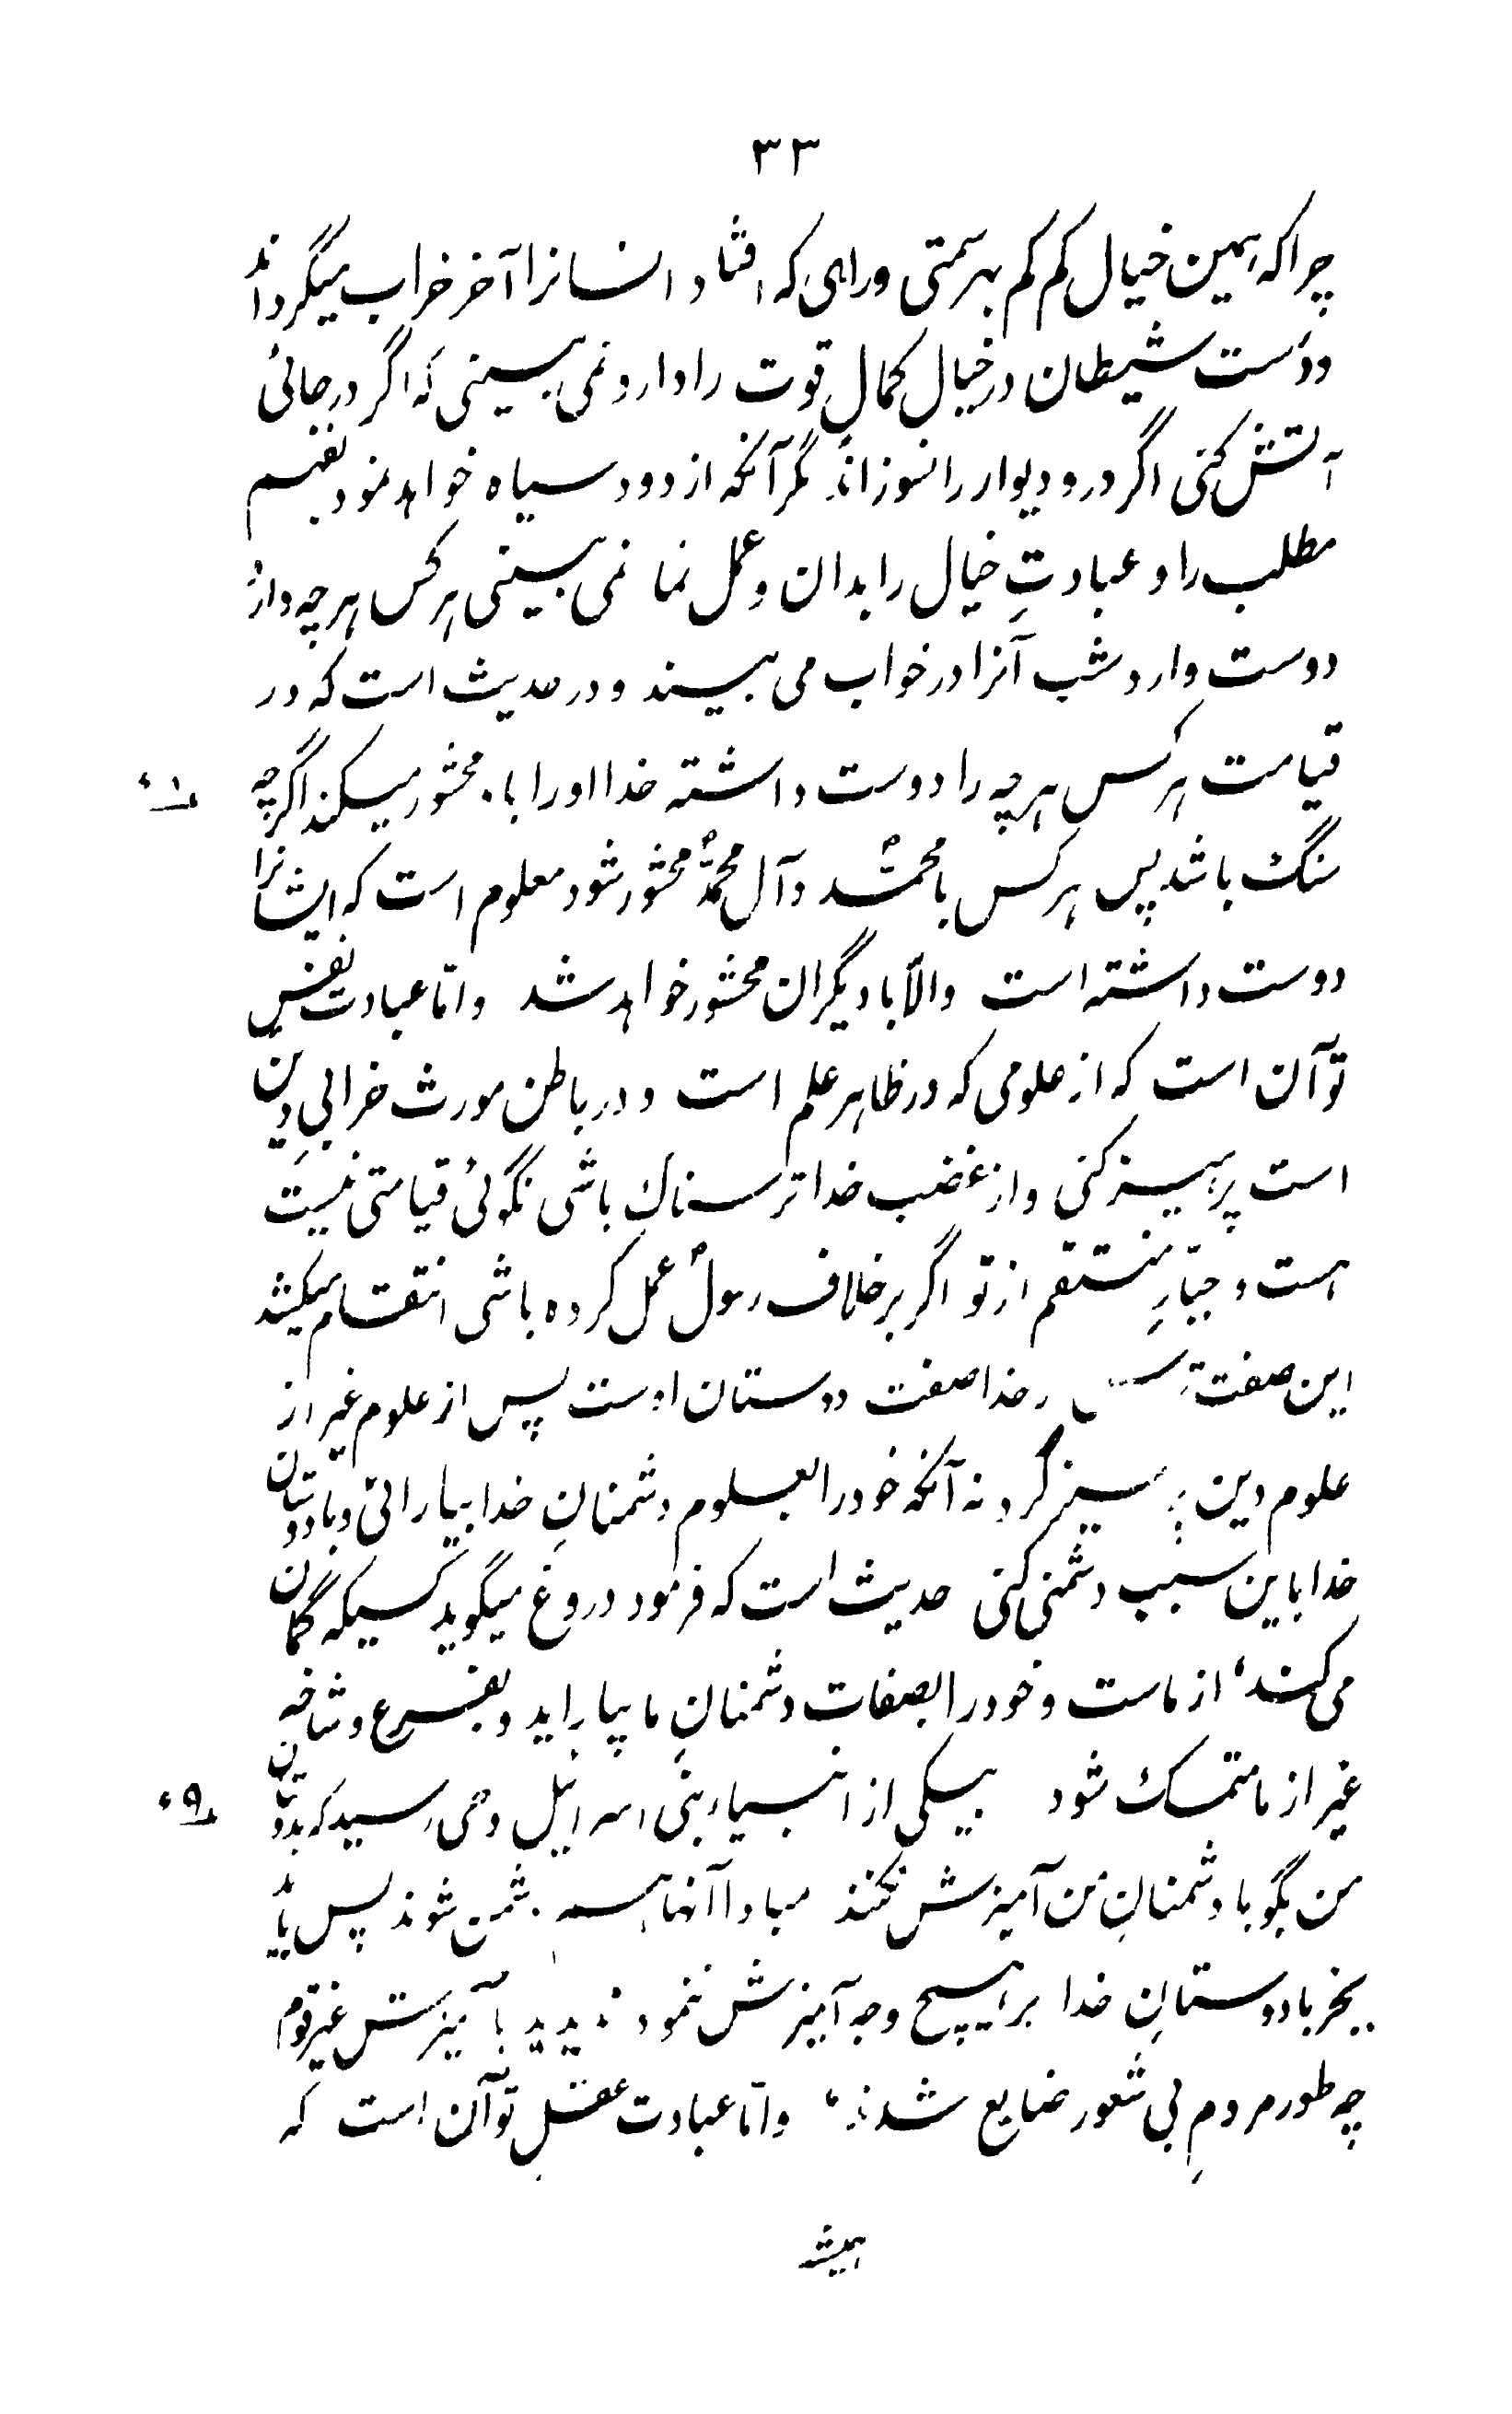 ۳۳
چرا که همین خیال کم کم بهر سمتی و راهی که افتاد انسانرا آخر خراب میگرداند
و دست شیطان در خیال کمال قوت را دارد نمی بینی که اگر در جائی
آتش کنی اگر در و دیوار را نسوزاند مگر آنکه از دود سیاه خواهد نمود بفهم
مطلب را و عبادتِ خیال را بدان و عمل نما نمی بینی هر کس هر چه را
دوست دارد شب آنرا در خواب می بیند و در حدیث است که در
قیامت هر کس هر چه را دوست داشته خدا او را با محشور میکند اگر چه
۱ء
سنگ باشد پس هر کس با محمدؐ و آل محمدؐ محشور شود معلوم است که ایشانرا
دوست داشته است و الّا با دیگران محشور خواهد شد و امّا عبادت نفسِ
تو آن است که از علومی که در ظاهر علم است و در باطن مورث خرابیِ دین
است پرهیز کنی و از غضب خدا ترسناک باشی نگوئی قیامتی نیست
هست و جبّارِ منتقم از تو اگر بر خلاف رسولؐ عمل کرده باشی انتقام میکشد
این صفت خدا صفت دوستان اوست پس از علوم غیر از
علوم دین پرهیز کرد نه آنکه خود را بعلوم دشمنانِ خدا بیارائی و با دوستان
خدا باین سبب دشمنی کنی حدیث است که فرمود دروغ میگوید کسیکه گمان
می کند از ماست و خود را بصفات دشمنانِ ما بیاراید و بفرع و شاخه
غیر از ما متمسک شود بیکی از انبیاء بنی اسرائیل وحی رسید که بدوستان
۹ء
من بگو با دشمنانِ من آمیزش نکنند مبادا آنها دشمن شوند پس باید
بجز با دوستانِ خدا بر هیچ وجه آمیزش ننمود ندیدید بآمیزش غیر قوم
چه طور مردمِ بی شعور ضایع شدند و امّا عبادت عقلِ تو آن است که
همیشه